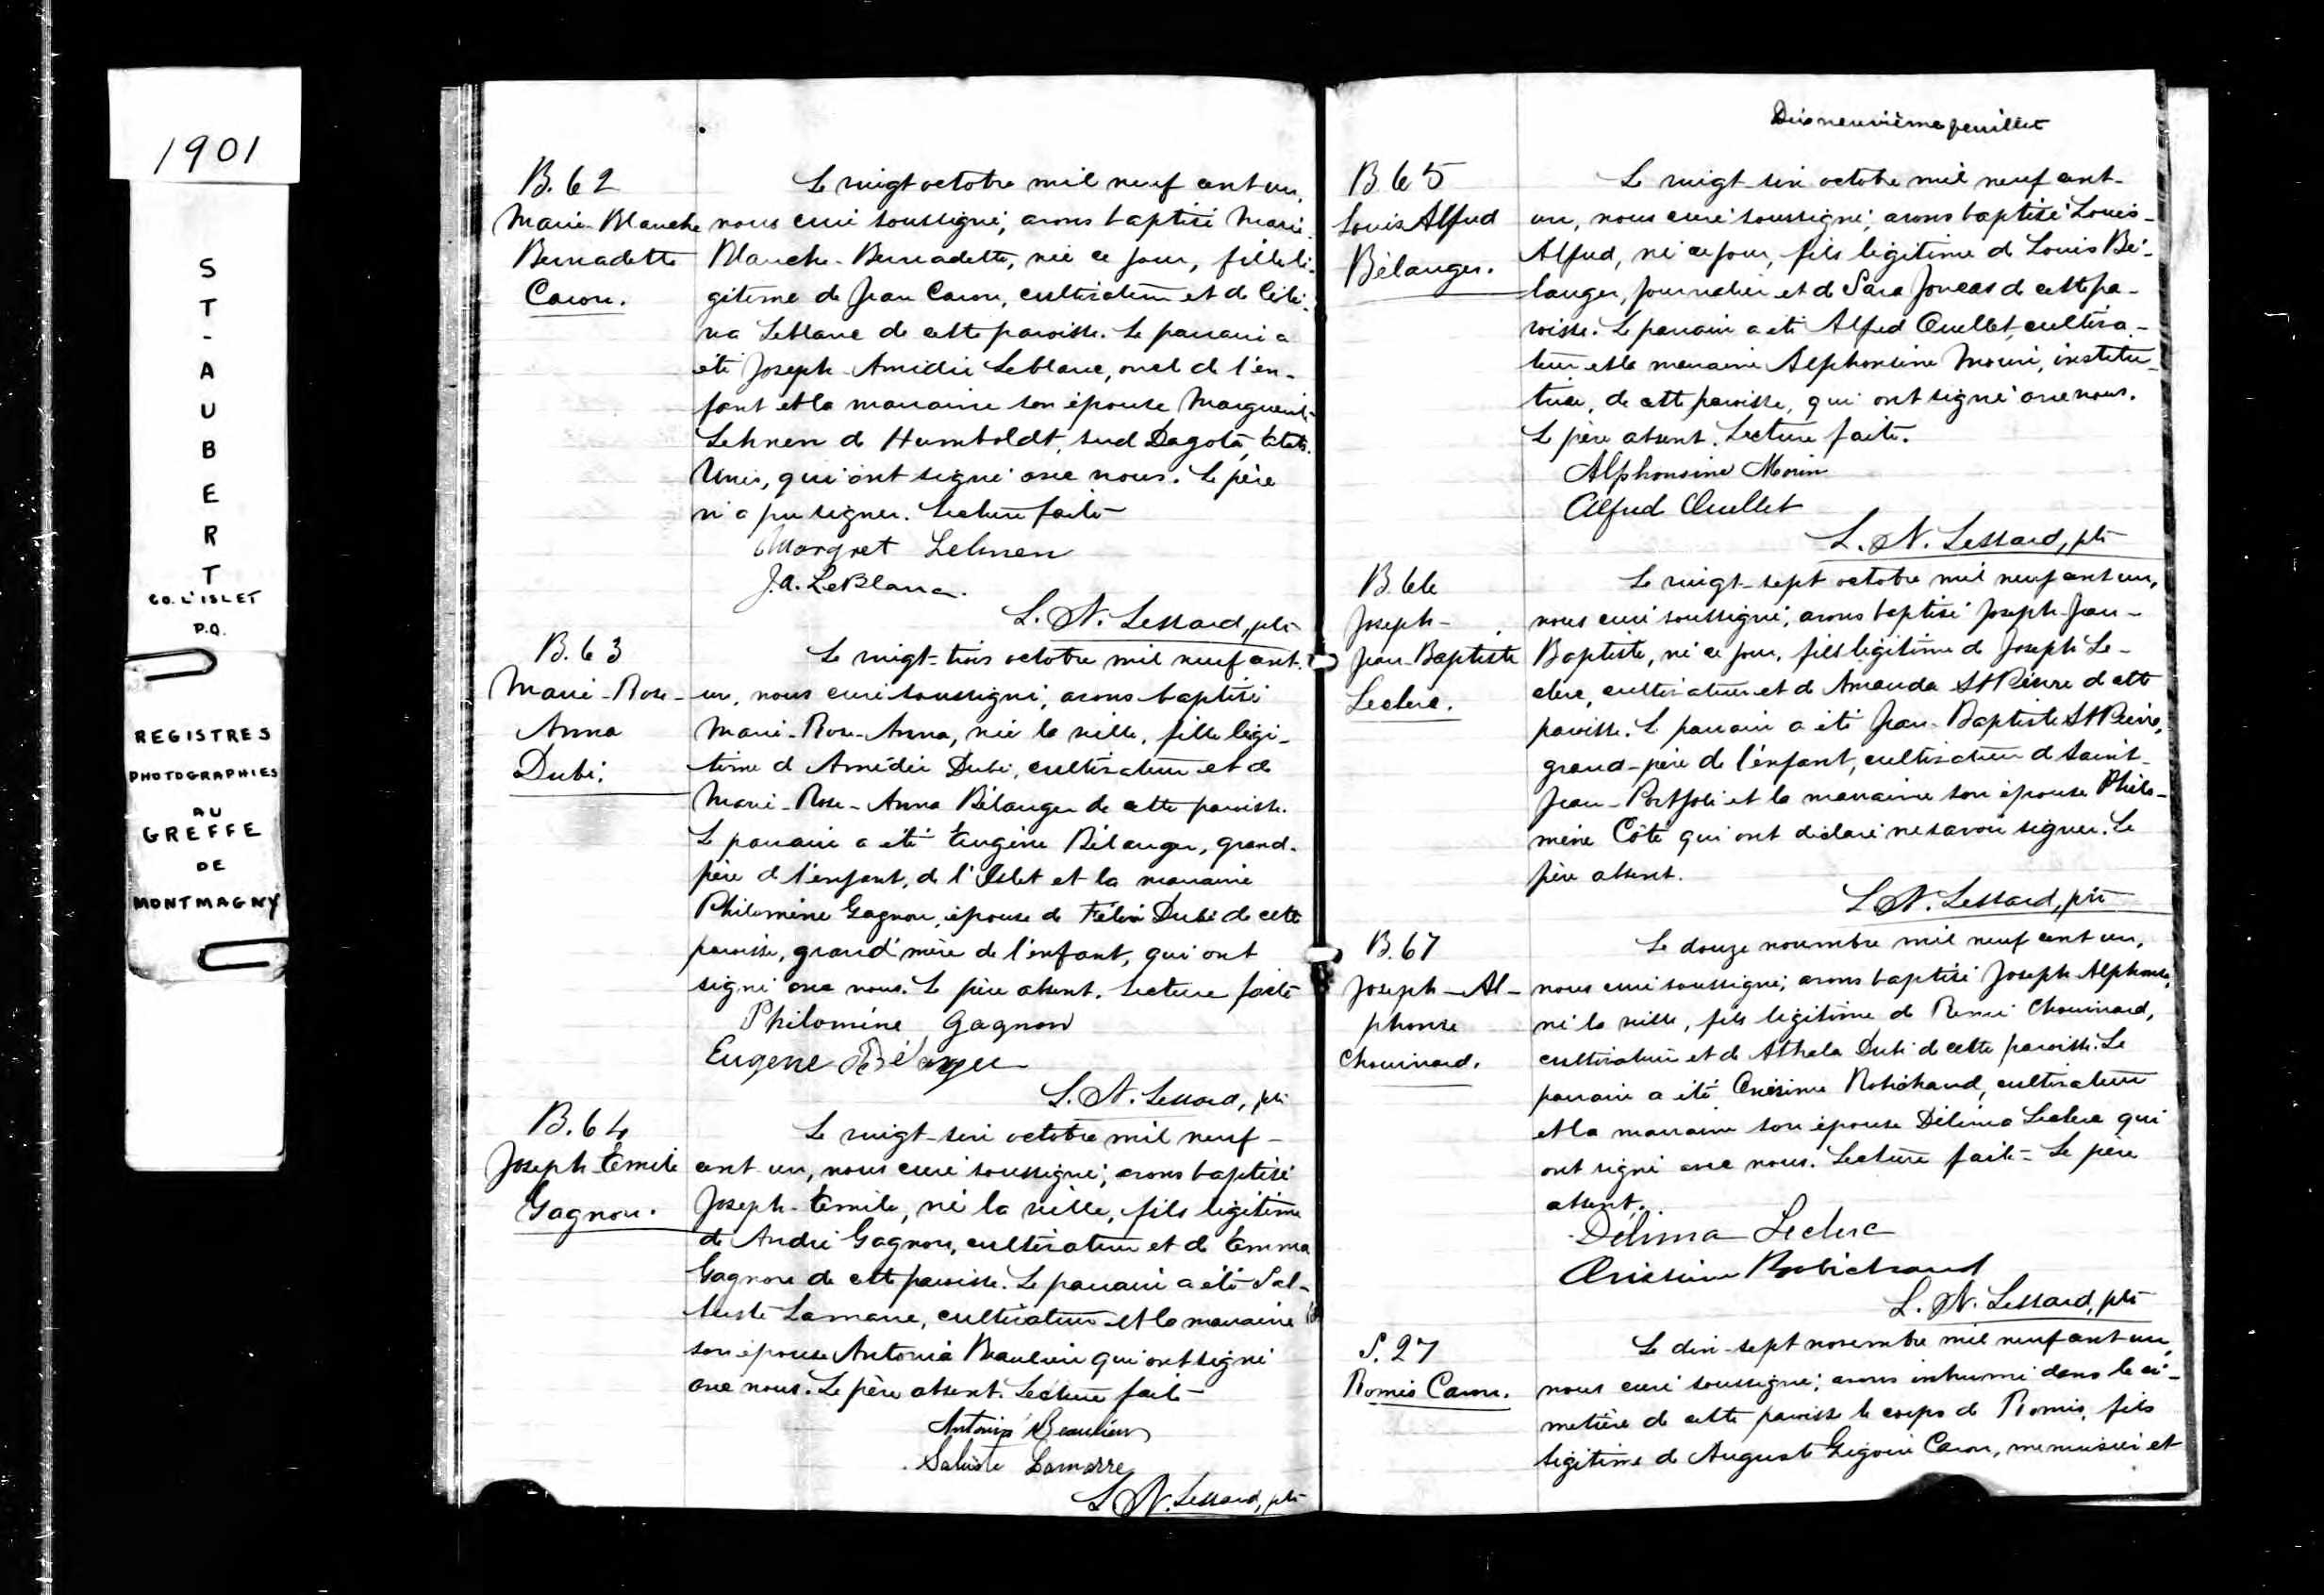 1901
ST-AUBERT
CO. L'ISLET
P.Q.
REGISTRES
PHOTOGRAPHIES
AU
GREFFE
DE
MONTMAGNY
B. 62
Marie-Blanche
Bernadette
Caron.
Le vingt octobre mil neuf cent un,
nous curé soussigné, avons baptisé Marie
Blanche-Bernadette, née ce jour, fille lé-
gitime de Jean Caron, cultivateur et de Céli-
na Leblanc de cette paroisse. Le parrain a
été Joseph-Amédée Leblanc, oncle de l'en-
fant et la marraine son épouse Marguerite
Lehnen de Humboldt, sud Dagota, Etats-
Unis, qui ont signé avec nous. Le père
n'a pu signer. Lecture faite
Margret Lehnen
J.A. LeBlanc.
L. N. Lessard, ptre
B. 63
Marie-Rose-
Anna
Dubé.
Le vingt-trois octobre mil neuf cent-
un, nous curé soussigné, avons baptisé
Marie-Rose-Anna, née la veille, fille légi-
time de Amédée Dubé, cultivateur et de
Marie-Rose-Anna Bélanger de cette paroisse.
Le parrain a été Eugène Bélanger, grand-
père de l'enfant, de l'Islet et la marraine
Philomène Gagnon, épouse de Félix Dubé de cette
paroisse, grand'mère de l'enfant, qui ont
signé avec nous. Le père absent. Lecture faite
Philomène Gagnon
Eugene Bélanger
L. N. Lessard, ptre
B. 64
Joseph-Emile
Gagnon.
Le vingt-six octobre mil neuf-
cent un, nous curé soussigné, avons baptisé
Joseph-Emile, né la veille, fils légitime
de André Gagnon, cultivateur et de Emma
Gagnon de cette paroisse. Le parrain a été Sal-
luste Lamarre, cultivateur et la marraine
son épouse Antonia Beaulieu qui ont signé
avec nous. Le père absent. Lecture faite
Antonia Beaulieu
Saluste Lamarre
L. N. Lessard, ptre
Dix neuvième feuillet
B. 65
Louis Alfred
Bélanger.
Le vingt-six octobre mil neuf cent-
un, nous curé soussigné, avons baptisé Louis-
Alfred, né ce jour, fils légitime de Louis Bé-
langer, journalier et de Sara Joncas de cette pa-
roisse. Le parrain a été Alfred Ouellet, cultiva-
teur et la marraine Alphonsine Morin, institu-
trice, de cette paroisse, qui ont signé avec nous.
Le père absent. Lecture faite.
Alphonsine Morin
Alfred Ouellet
L. N. Lessard, ptre
B. 66
Joseph-
Jean-Baptiste
Leclerc.
Le vingt-sept octobre mil neuf cent un,
nous curé soussigné, avons baptisé Joseph-Jean-
Baptiste, né ce jour, fils légitime de Joseph Le-
clerc, cultivateur et de Amanda St Pierre de cette
paroisse. Le parrain a été Jean-Baptiste St Pierre,
grand-père de l'enfant, cultivateur de Saint-
Jean-Port Joli et la marraine son épouse Philo-
mène Côté qui ont déclaré ne savoir signer. Le
père absent.
L. N. Lessard, ptre
B. 67
Joseph-Al-
phonse
Chouinard.
Le douze novembre mil neuf cent un,
nous curé soussigné, avons baptisé Joseph-Alphonse,
né la veille, fils légitime de Rémi Chouinard,
cultivateur et de Athala Dubé de cette paroisse. Le
parrain a été Onésime Robichaud, cultivateur
et la marraine son épouse Délima Leclerc qui
ont signé avec nous. Lecture faite - Le père
absent.
Délima Leclerc
Onésime Robichaud
L. N. Lessard, ptre
S. 27
Roméo Caron.
Le dix-sept novembre mil neuf cent un,
nous curé soussigné, avons inhumé dans le ci-
metière de cette paroisse le corps de Roméo, fils
légitime de Auguste Ligori Caron, menuisier et